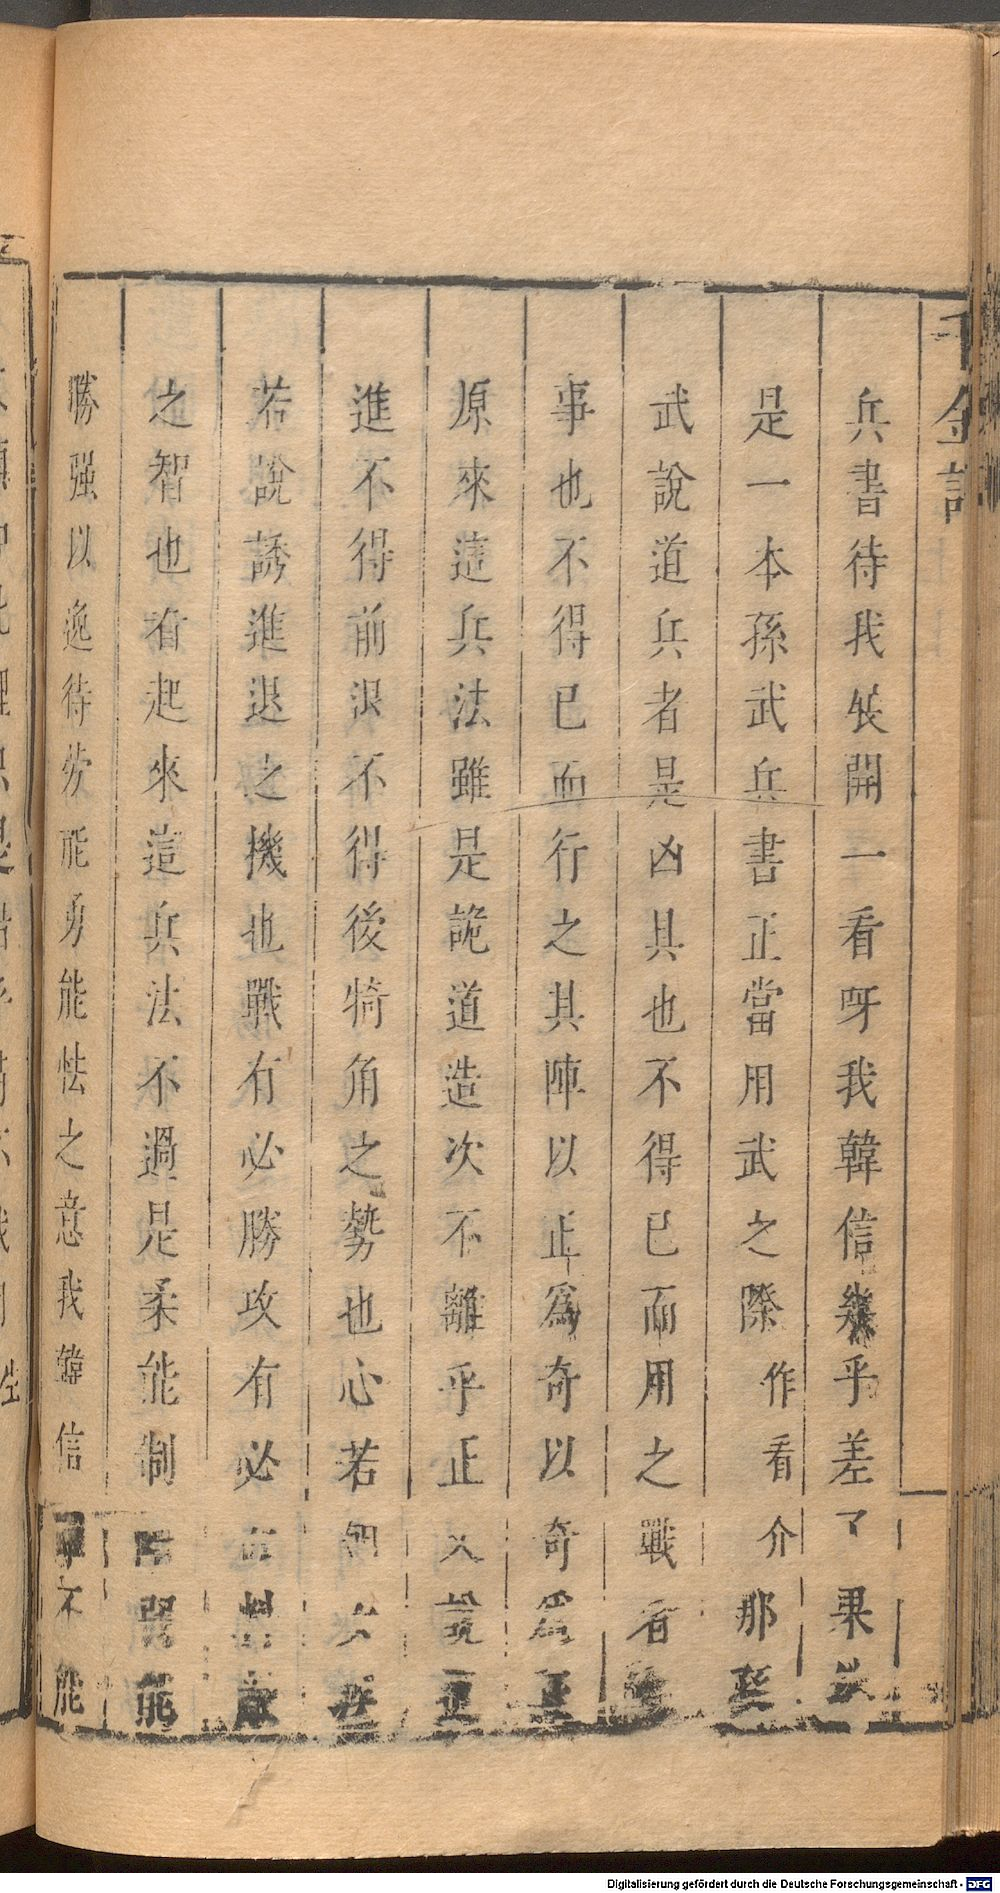 千金記
兵書待我展開一看呀我韓信幾乎差了果
是一本孫武兵書正當用武之際作看介那孫
武說道兵者是凶具也不得已而用之戰者
事也不得已而行之其陣以正為奇以奇爲正
原來這兵法雖是詭道造次不離乎正又說
進不得前退不得後犄角之勢也心若
若說誘進退之機也戰有必勝攻有必
之智也看起來這兵法不過是柔能制弱能
勝强以逸待勞能勇能怯之意我韓信不能
Digitalisierung gefördert durch die Deutsche Forschungsgemeinschaft - DFG